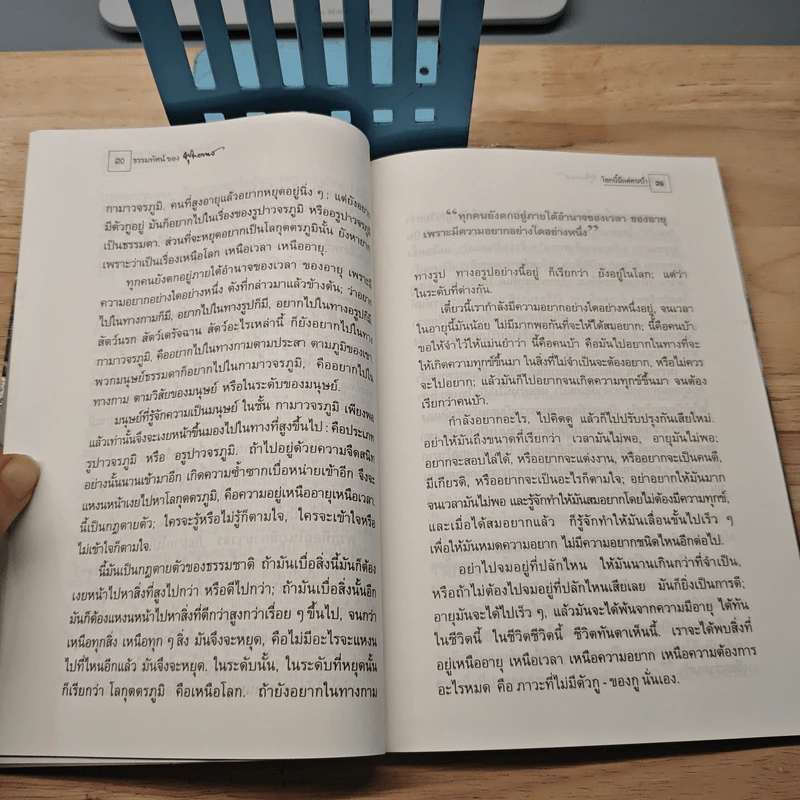 ๓๐ ธรรมทัศน์ ของ
กามาวจรภูมิ. คนที่สูงอายุแล้วอยากหยุดอยู่นิ่ง ๆ; แต่ยังอยาก
มีตัวกูอยู่ มันก็อยากไปในเรื่องของรูปาวจรภูมิ หรืออรูปาวจรภูมิ
เป็นธรรมดา. ส่วนที่จะหยุดอยากเป็นโลกุตตรภูมินั้น ยังหายาก
เพราะว่าเป็นเรื่องเหนือโลก เหนือเวลา เหนืออายุ.
ทุกคนยังตกอยู่ภายใต้อำนาจของเวลา ของอายุ เพราะมี
ความอยากอย่างใดอย่างหนึ่ง ดังที่กล่าวมาแล้วข้างต้น; ว่าอยาก
ไปในทางกามก็มี, อยากไปในทางรูปก็มี, อยากไปในทางอรูปก็มี
สัตว์นรก สัตว์เดรัจฉาน สัตว์อะไรเหล่านี้ ก็ยังอยากไปในทาง
กามาวจรภูมิ, คืออยากไปในทางกามตามประสา ตามภูมิของเขา
พวกมนุษย์ธรรมดาก็อยากไปในกามาวจรภูมิ, คืออยากไปใน
ทางกาม ตามวิสัยของมนุษย์ หรือในระดับของมนุษย์.
มนุษย์ที่รู้จักความเป็นมนุษย์ ในชั้น กามาวจรภูมิ เพียงพอ
แล้วเท่านั้นจึงจะเงยหน้าขึ้นมองไปในทางที่สูงขึ้นไป : คือประเภท
รูปาวจรภูมิ หรือ อรูปาวจรภูมิ. ถ้าไปอยู่ด้วยความจืดสนิท
อย่างนั้นนานเข้ามาอีก เกิดความซ้ำซากเบื่อหน่ายเข้าอีก จึงจะ
แหงนหน้าเงยไปหาโลกุตตรภูมิ, คือความอยู่เหนืออายุเหนือเวลา,
นี้เป็นกฎตายตัว; ใครจะรู้หรือไม่รู้ก็ตามใจ, ใครจะเข้าใจหรือ
ไม่เข้าใจก็ตามใจ.
นี้มันเป็นกฎตายตัวของธรรมชาติ ถ้ามันเบื่อสิ่งนี้มันก็ต้อง
เงยหน้าไปหาสิ่งที่สูงไปกว่า หรือดีไปกว่า; ถ้ามันเบื่อสิ่งนั้นอีก
มันก็ต้องแหงนหน้าไปหาสิ่งที่ดีกว่าสูงกว่าเรื่อย ๆ ขึ้นไป, จนกว่า
เหนือทุกสิ่ง เหนือทุก ๆ สิ่ง มันจึงจะหยุด, คือไม่มีอะไรจะแหงน
ไปที่ไหนอีกแล้ว มันจึงจะหยุด. ในระดับนั้น, ในระดับที่หยุดนั้น
ก็เรียกว่า โลกุตตรภูมิ คือเหนือโลก. ถ้ายังอยากในทางกาม
โลกนี้มีแต่คนบ้า ๓๑
“ทุกคนยังตกอยู่ภายใต้อำนาจของเวลา ของอายุ
เพราะมีความอยากอย่างใดอย่างหนึ่ง”
ทางรูป ทางอรูปอย่างนี้อยู่ ก็เรียกว่า ยังอยู่ในโลก; แต่ว่า
ในระดับที่ต่างกัน.
เดี๋ยวนี้เรากำลังมีความอยากอย่างใดอย่างหนึ่งอยู่, จนเวลา
ในอายุนี้มันน้อย ไม่มีมากพอกันที่จะให้ได้สมอยาก; นี้คือคนบ้า.
ขอให้จำไว้ให้แม่นยำว่า นี้คือคนบ้า คือมันไปอยากในทางที่จะ
ให้เกิดความทุกข์ขึ้นมา ในสิ่งที่ไม่จำเป็นจะต้องอยาก, หรือไม่ควร
จะไปอยาก; แล้วมันก็ไปอยากจนเกิดความทุกข์ขึ้นมา จนต้อง
เรียกว่าคนบ้า.
กำลังอยากอะไร, ไปคิดดู แล้วก็ไปปรับปรุงกันเสียใหม่.
อย่าให้มันถึงขนาดที่เรียกว่า เวลามันไม่พอ, อายุมันไม่พอ;
อยากจะสอบไล่ได้, หรืออยากจะแต่งงาน, หรืออยากจะเป็นคนดี,
มีเกียรติ, หรืออยากจะเป็นอะไรก็ตามใจ; อย่าอยากให้มันมาก
จนเวลามันไม่พอ และรู้จักทำให้มันสมอยากโดยไม่ต้องมีความทุกข์,
และเมื่อได้สมอยากแล้ว ก็รู้จักทำให้มันเลื่อนขั้นไปเร็ว ๆ
เพื่อให้มันหมดความอยาก ไม่มีความอยากชนิดไหนอีกต่อไป.
อย่าไปจมอยู่ที่ปลักไหน ให้มันนานเกินกว่าที่จำเป็น,
หรือถ้าไม่ต้องไปจมอยู่ที่ปลักไหนเสียเลย มันก็ยิ่งเป็นการดี;
อายุมันจะได้ไปเร็ว ๆ, แล้วมันจะได้พ้นจากความมีอายุ ได้ทัน
ในชีวิตนี้ ในชีวิตชีวิตนี้ ชีวิตทันตาเห็นนี้. เราจะได้พบสิ่งที่
อยู่เหนืออายุ เหนือเวลา เหนือความอยาก เหนือความต้องการ
อะไรหมด คือ ภาวะที่ไม่มีตัวกู - ของกู นั่นเอง.